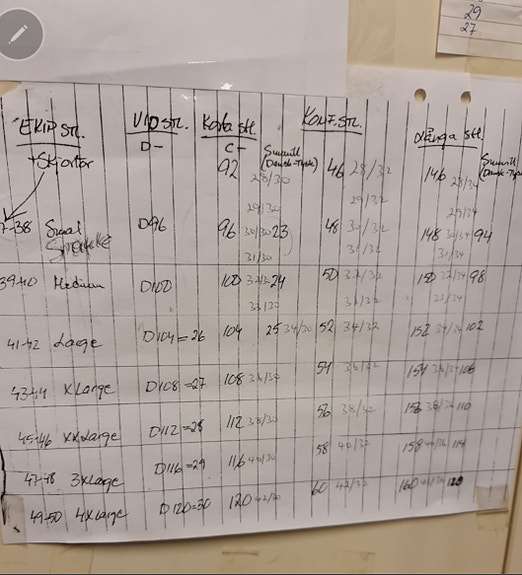 29
27
EKIP STL.
VID STL.
Korta stl.
KONF. STL.
Långa stl.
+ Skjortor
D-
C-
Sunwill
(Dansk-Tysk)
Sunwill
(Dansk-Tysk)
92 28/30
46 28/32
146 28/34
29/30
29/32
29/34
7-38 Small
D96
96 30/30 23
48 30/32
148 30/34 94
31/30
31/32
31/34
39-40 Medium
D100
100 32/30 24
50 32/32
150 32/34 98
33/30
33/32
33/34
41-42 Large
D104=26
104 25 34/30
52 34/32
152 34/34 102
43-44 XLarge
D108=27
108 36/30
54 36/32
154 36/34 106
45-46 XXLarge
D112=28
112 38/30
56 38/32
156 38/34 110
47-48 3XLarge
D116=29
116 40/30
58 40/32
158 114
49-50 4XLarge
D120=30
120 42/30
60 42/32
160 42/34